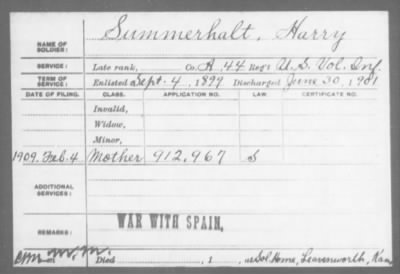 Summerhalt, Harry
NAME OF SOLDIER:
SERVICE: Late rank, Co. A, 44 Reg't U.S. Vol. Inf.
TERM OF SERVICE: Enlisted Sept. 4, 1899 Discharged June 30, 1901
DATE OF FILING. CLASS. APPLICATION NO. LAW. CERTIFICATE NO.
Invalid,
Widow,
Minor,
1909. Feb. 4 Mother 912,967 S
ADDITIONAL SERVICES:
REMARKS: WAR WITH SPAIN,
Died , 1 , at Sol. Home, Leavenworth, Kan